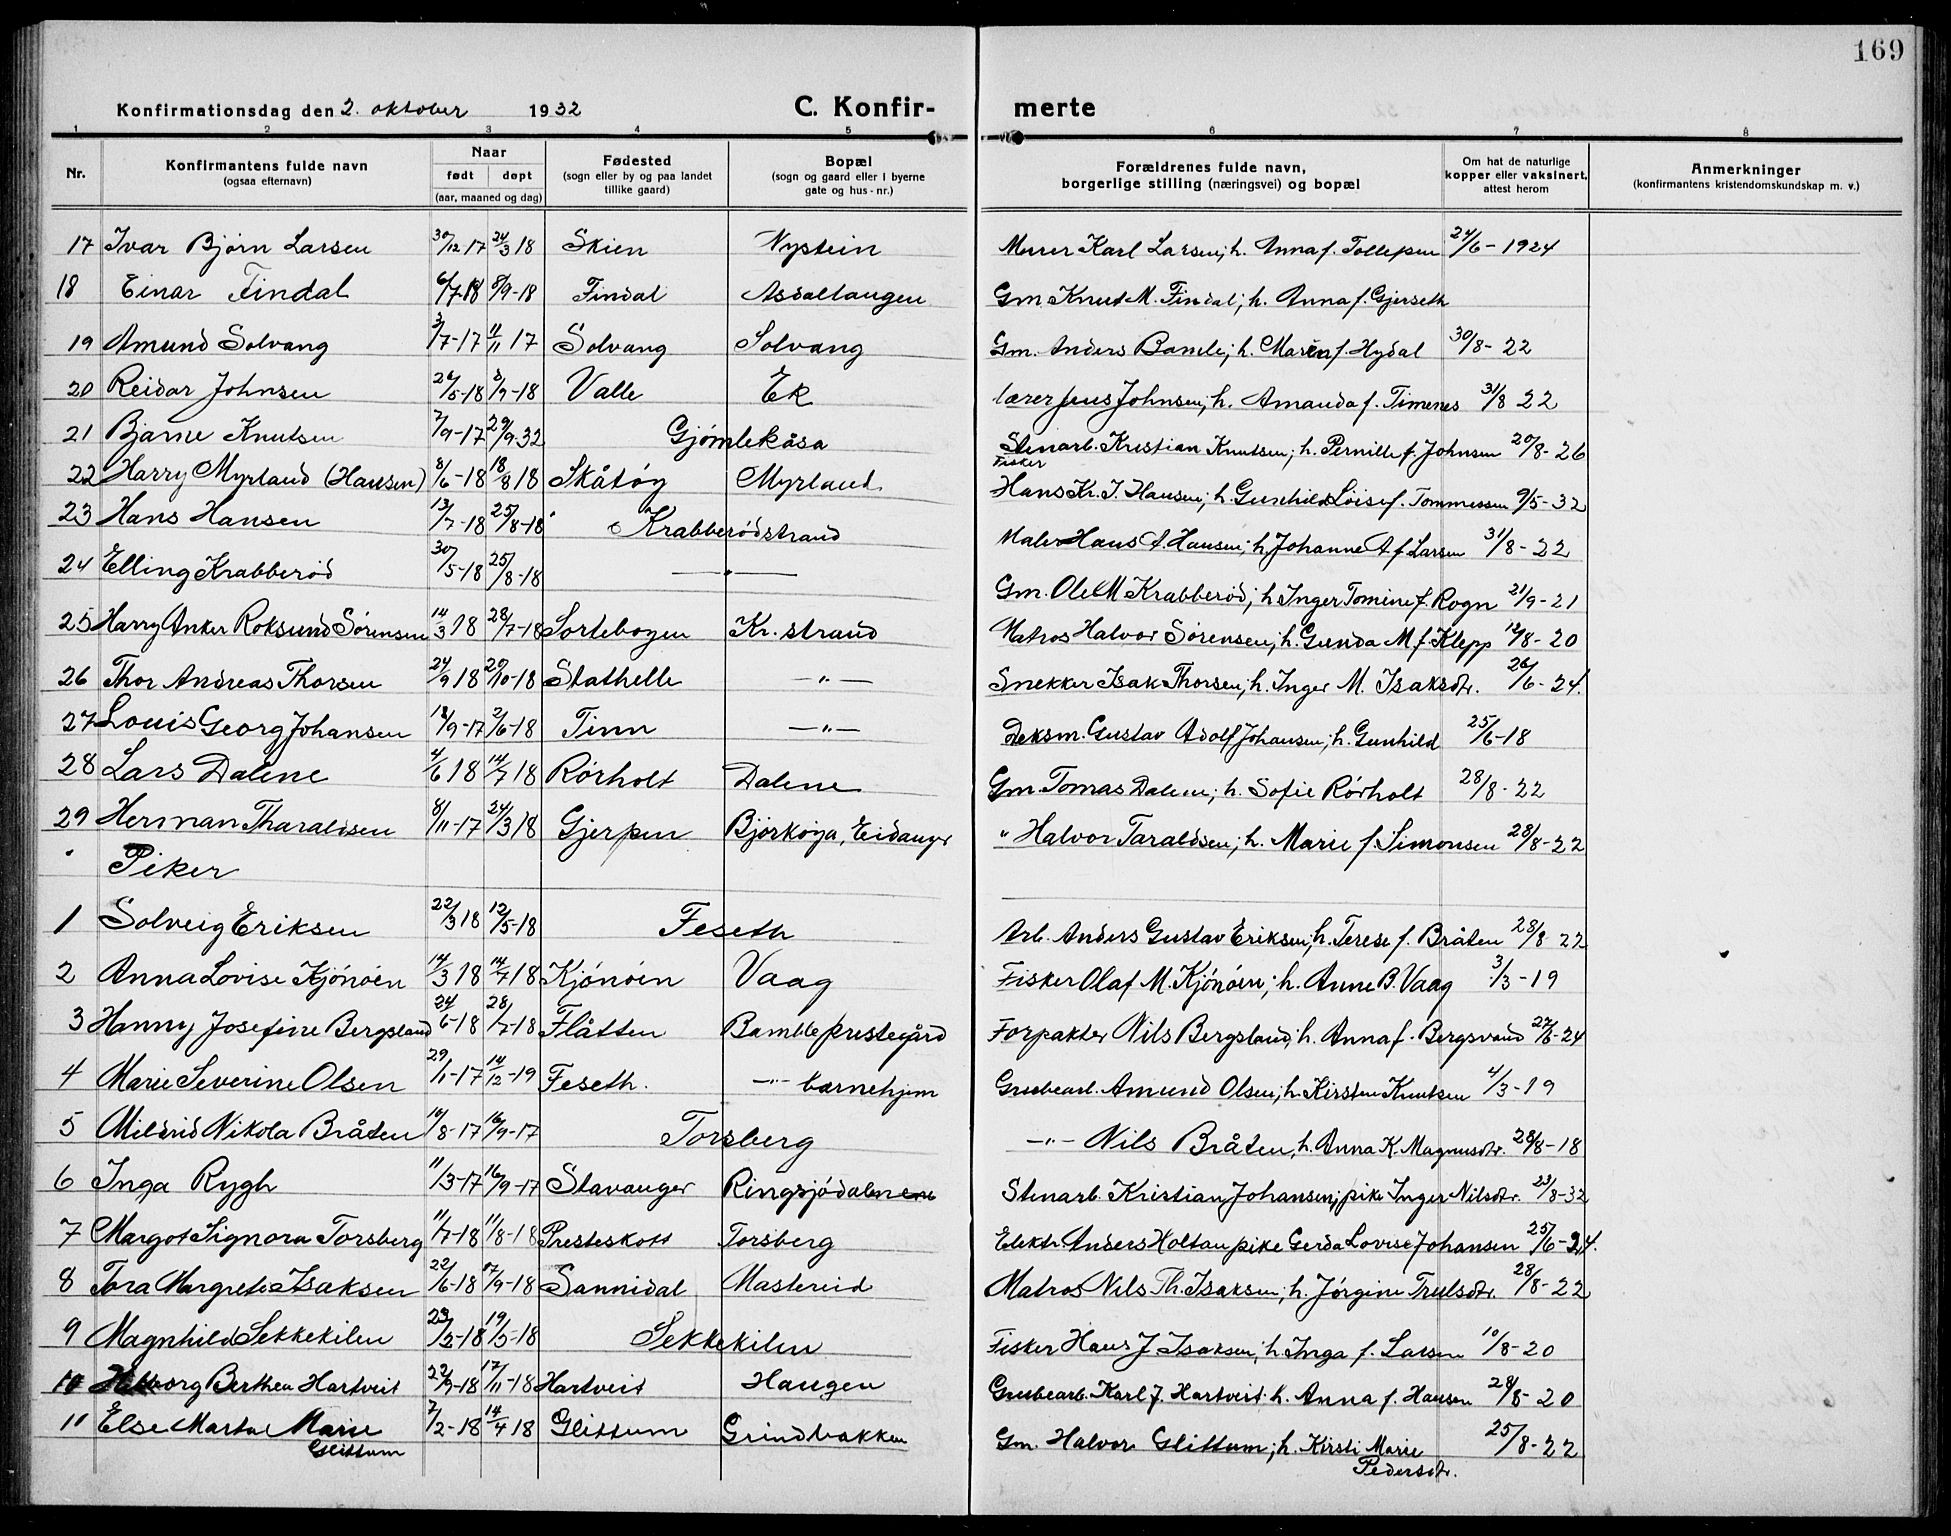 169
Konfirmationsdag den 2. oktober 1932 C. Konfir- merte
1 2 3 4 5 6 7 8
Nr. Konfirmantens fulde navn (ogsaa efternavn) Naar født døpt (aar, maaned og dag) Fødested (sogn eller by og paa landet tillike gaard) Bopæl (sogn og gaard eller i byerne gate og hus-nr.) Forældrenes fulde navn, borgerlige stilling (næringsvei) og bopæl Om hat de naturlige kopper eller vaksinert, attest herom Anmerkninger (konfirmantens kristendomskundskap m. v.)
17 Ivar Bjørn Larsen 30/12-17 24/3 18 Skien Nystein Murer Karl Larsen; h. Anna f. Tollefsen 24/6-1924
18 Einar Findal 6/7-18 8/9-18 Findal Asdaltangen Gm. Knut M. Findal; h. Anna f. Gjerseth
19 Amund Solvang 3/7-17 11/11 17 Solvang Solvang Gm. Anders Bamle; h. Maren f. Hydal 30/8-22
20 Reidar Johnsen 26/5-18 8/9-18 Valle Ek lærer Jens Johnsen; h. Amanda f. Timenes 31/8 22
21 Bjarne Knutsen 7/9-17 29/9-32 Gjømlekåsa Stenarb. Kristian Knutsen; h. Pernille f. Johnsen 20/8-26
22 Harry Myrland (Hansen) 8/6-18 18/8 18 Skåtøy Myrland Fisker Hans Kr. J. Hansen; h. Gunhild Loise f. Tommessen 9/5-32
23 Hans Hansen 13/7-18 25/8-18 Krabberødstrand Maler Hans A. Hansen; h. Johanne A f. Larsen 31/8-22
24 Elling Krabberød 30/5-18 25/8-18 —"— Gm. Ole M Krabberød; h. Inger Tomine f. Rogn 21/9-21
25 Harry Anker Roksund Sørensen 14/3 18 28/7-18 Sortebogen Kr. strand Matros Halvor Sørensen; h. Gunda M f. Klepp 12/8-20
26 Thor Andreas Thorsen 24/9 18 20/10-18 Stathelle —"— Snekker Isak Thorsen; h. Inger M. Isaksdtr. 26/6-24.
27 Louis Georg Johansen 12/9-17 2/6-18 Tinn —"— Deksm. Gustav Adolf Johansen; h. Gunhild 25/6-18
28 Lars Dalene 4/6 18 14/7 18 Rørholt Dalene Gm. Tomas Dalene; h. Sofie Rørholt 28/8-22
29 Herman Tharaldsen 8/11-17 24/3 18 Gjerpen Bjørkøya, Eidanger " Halvor Taraldsen; h. Marie f. Simonsen 28/8-22
Piker
1 Solveig Eriksen 22/3 18 12/5-18 Feseth Arb. Anders Gustav Eriksen; h. Terese f. Bråten 28/8 22
2 Anna Lovise Kjønøen 14/3 18 14/7 18 Kjønøen Vaag Fisker Olaf M. Kjønøen; h. Anne B. Vaag 3/3-19
3 Hanny Josefine Bergsland 24/6-18 28/7-18 Flåtten Bamble prestegård Forpakter Nils Bergsland; h. Anna f. Bergsvand 27/6-24
4 Marie Severine Olsen 29/11-17 14/12-19 Feseth. —"— barnehjem Grubearb. Amund Olsen; h. Kirsten Knutsen 4/3-19
5 Mildrid Nikola Bråten 10/8-17 16/9-17 Torsberg —"— Nils Bråten, h. Anna K. Magnusdtr. 28/8-18
6 Inga Rygh 11/3-17 16/9-17 Stavanger Ringsjødalen Stenarb. Kristian Johansen; pike Inger Nilsdtr. 23/8-32
7 Margot Signora Torsberg 11/7-18 11/8-18 Presteskott Torsberg Elektr. Anders Holtan pike Gerda Lovise Johansen 25/6-24.
8 Tora Margrete Isaksen 22/6-18 07/9-18 Sannidal Mastereid Matros Nils Th. Isaksen; h. Jørgine Trulsdtr. 28/8-22
9 Magnhild Sekkekilen 23/2-18 19/5-18 Sekkekilen Fisker Hans J. Isaksen; h. Inga f. Larsen 10/8-20
10 Berthea Hartveit 22/9-18 17/11-18 Hartveit Haugen Grubearb. Karl J. Hartveit h. Anna f. Hansen 28/8-20
11 Else Marta Marie Glittum 7/2-18 14/4 18 Glittum Grindbakken Gm. Halvor Glittum; h. Kirsti Marie Pedersdtr. 25/8-22